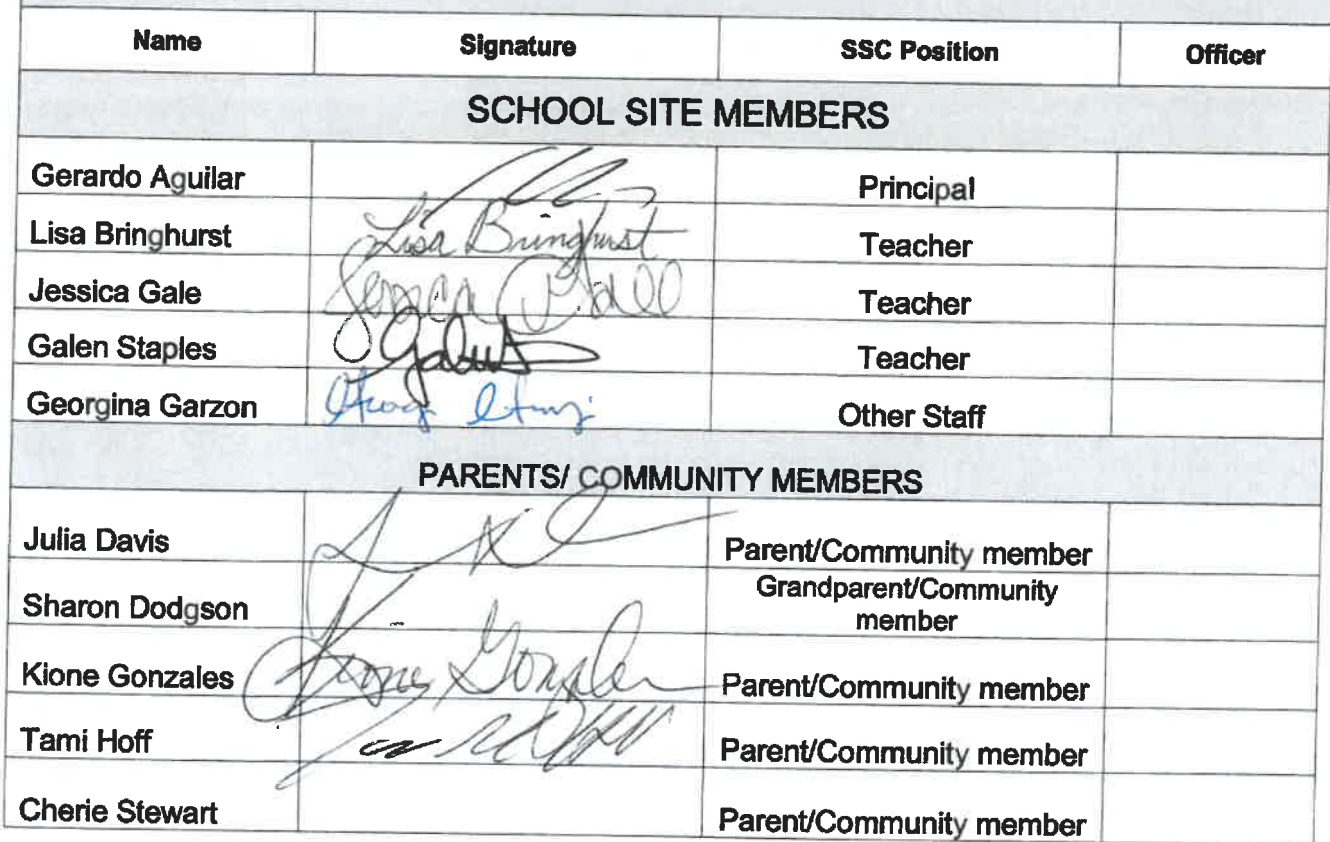 Name Signature SSC Position Officer
SCHOOL SITE MEMBERS
Gerardo Aguilar Principal
Lisa Bringhurst Lisa Bringhurst Teacher
Jessica Gale Jessica Teacher
Galen Staples Teacher
Georgina Garzon Other Staff
PARENTS/ COMMUNITY MEMBERS
Julia Davis Parent/Community member
Sharon Dodgson Grandparent/Community
member
Kione Gonzales Kione Gonzales Parent/Community member
Tami Hoff Parent/Community member
Cherie Stewart Parent/Community member